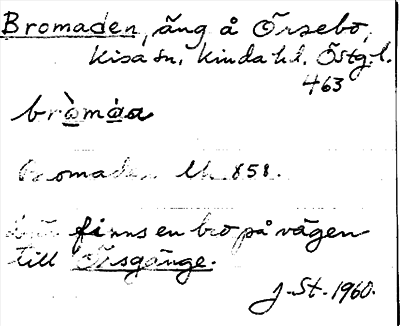 Bromaden, äng å Örsebo,
Kisa sn, Kinda hd. Östg. l.
463
bròmàa
Bromaden lk 858.
Där finns en bro på vägen
till Örsgänge.
J. St. 1960.